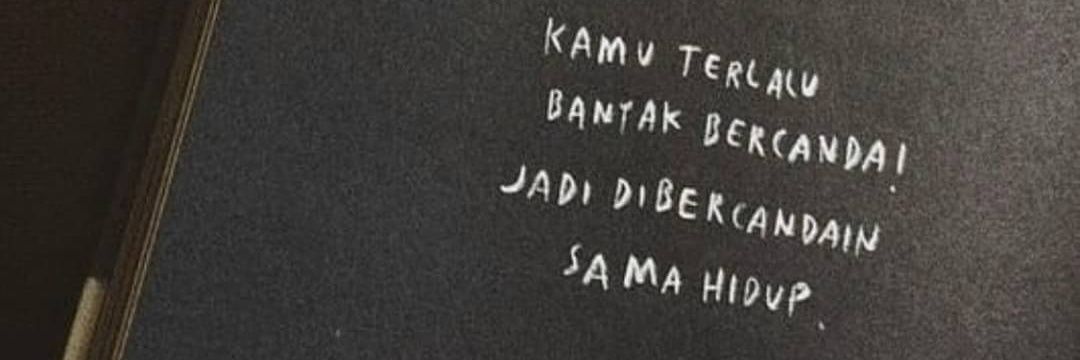 KAMU TERLALU
BANYAK BERCANDA!
JADI DIBERCANDAIN
SAMA HIDUP.